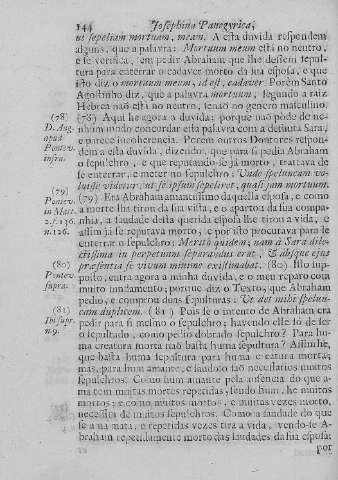 144 Josephina Panegyrica,
ut sepeliam mortuum, meum. A esta duvida respondem
alguns, que a palavra: Mortuum meum està no neutro,
e se verifica, em pedir Abraham que lhe dessem sepul-
tura para enterrar o cadaver morto da sua esposa, e que
isto diz o mortuum meum, id est, cadaver Porèm Santo
Agostinho diz, que a palavra mortuum, segundo a raiz
Hebrea naõ està no neutro, senaõ no genero masculino.
(78) (78) Aqui he agora a duvida; porque naõ pòde de ne-
D. Aug. nhum modo concordar esta palavra com a defunta Sara,
apud e parece incoherencia. Porem outros Doutores respon-
Pontev. dem a esta duvida, dizendo, que para si pedia Abraham
infra. o sepulchro, e que reputando-se jà morto, tratava de
se enterrar, e meter no sepulchro: Unde speluncam vo-
(79) luisse videtur, ut se ipsum sepeliret, quasi jam mortuum.
Pontev. (79) Era Abraham amantissimo daquella esposa, e como
in Mat. a morte lha tirou da sua vista, e o apartou da sua compa-
nhia, a saudade desta querida esposa lhe tirou a vida, e
n.126. assim ja se reputava morto, e por isso procurava para se
enterrar o sepulchro: Meritò quidem, nam à Sara dile-
ctissima in perpetuum separandus erat, & absque ejus
(80) præsentia se vivum minime existimabat. (80) Isto sup-
Pontev. posto, entra agora a minha duvida, e o meu reparo com
supra. muito fundamento; porque diz o Texto, que Abraham
pedio, e comprou duas sepulturas: Ut det mihi spelun-
(81) cam duplicem. (81) Pois se o intento de Abraham era
Ibi supr. pedir para si mesmo o sepulchro; havendo elle só de ser
n.9. o sepultado, como pedio dobrado sepulchro? Para hu-
ma creatura morta naõ basta huma sepultura? Assim he,
que basta huma sepultura para huma creatura morta;
mas, para hum amante, e saudoso saõ necessarios muitos
sepulchros. Como hum amante pela ausencia do que a-
ma tem muitas mortes repetidas, sendo hum, he muitos
mortos; e como muitos mortos, e muitas vezes morto,
necessita de muitos sepulchros. Como a saudade do que
se ama mata, e repetidas vezes tira a vida, vendo-se A-
braham repetidamente morto das saudades da sua esposa;
por